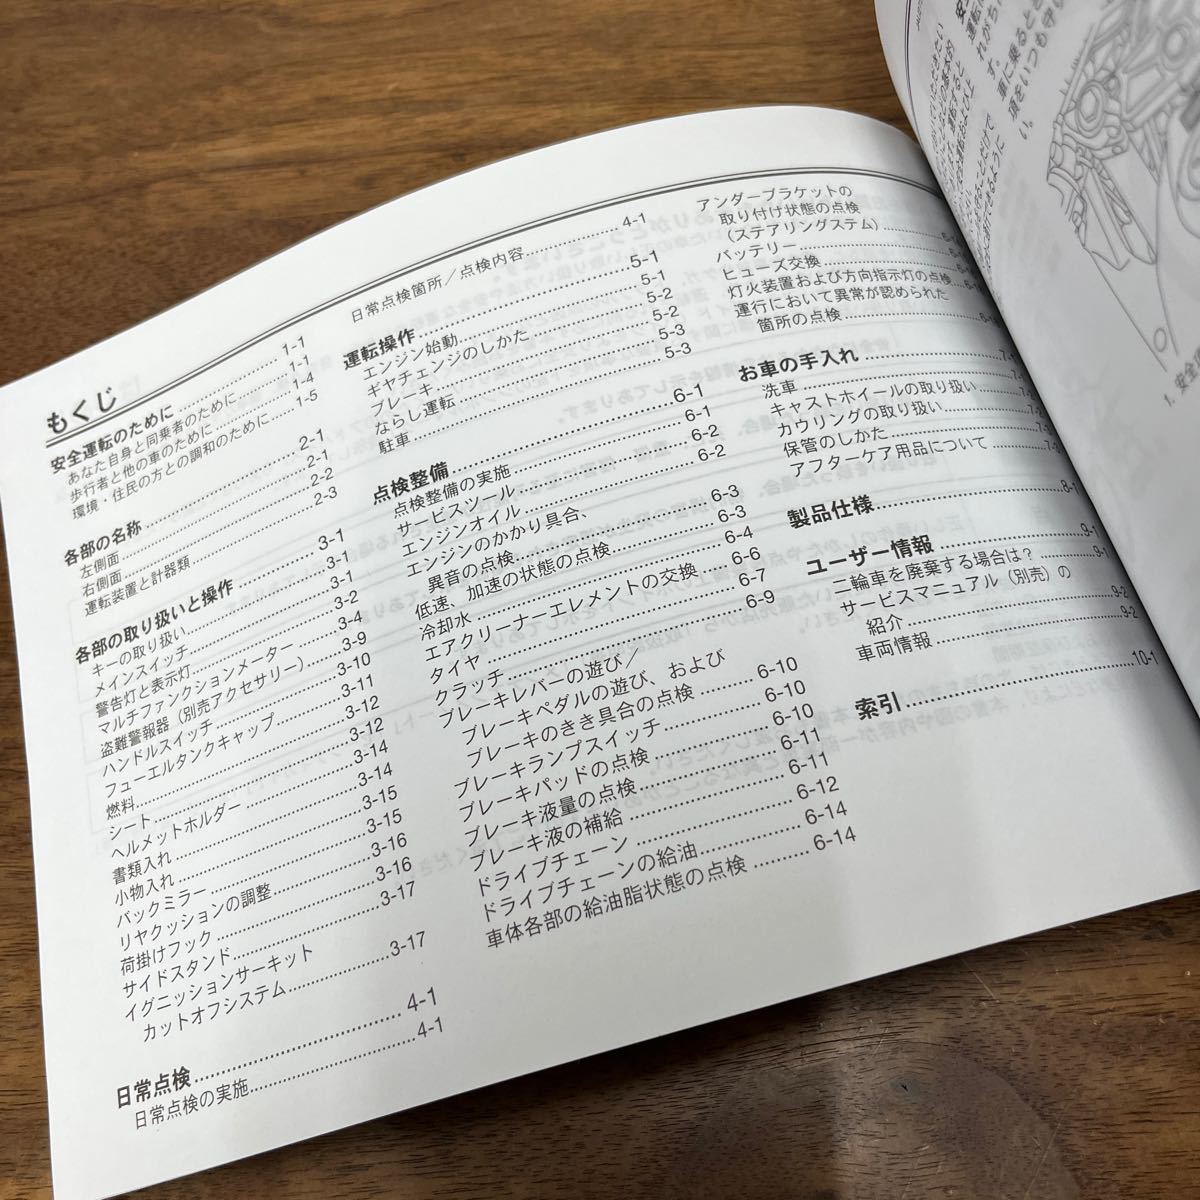 もくじ
安全運転のために 1-1
あなた自身と同乗者のために 1-1
歩行者と他の車のために 1-4
環境・住民の方との調和のために 1-5
各部の名称 2-1
左側面 2-1
右側面 2-2
運転装置と計器類 2-3
各部の取り扱いと操作 3-1
キーの取り扱い 3-1
メインスイッチ 3-1
警告灯と表示灯 3-2
マルチファンクションメーター 3-4
盗難警報器（別売アクセサリー） 3-9
ハンドルスイッチ 3-10
フューエルタンクキャップ 3-11
燃料 3-12
シート 3-12
ヘルメットホルダー 3-14
書類入れ 3-14
小物入れ 3-15
バックミラー 3-15
リヤクッションの調整 3-16
荷掛けフック 3-16
サイドスタンド 3-17
イグニッションサーキット
カットオフシステム 3-17
日常点検 4-1
日常点検の実施 4-1
日常点検箇所／点検内容 4-1
運転操作 5-1
エンジン始動 5-1
ギヤチェンジのしかた 5-2
ブレーキ 5-2
ならし運転 5-3
駐車 5-3
点検整備 6-1
点検整備の実施 6-1
サービスツール 6-2
エンジンオイル 6-2
エンジンのかかり具合、
異音の点検 6-3
低速、加速の状態の点検 6-3
冷却水 6-4
エアクリーナーエレメントの交換 6-6
タイヤ 6-7
クラッチ 6-9
ブレーキレバーの遊び／
ブレーキペダルの遊び、および
ブレーキのきき具合の点検 6-10
ブレーキランプスイッチ 6-10
ブレーキパッドの点検 6-10
ブレーキ液量の点検 6-11
ブレーキ液の補給 6-11
ドライブチェーン 6-12
ドライブチェーンの給油 6-14
車体各部の給油脂状態の点検 6-14
アンダーブラケットの
取り付け状態の点検
（ステアリングステム）
バッテリー
ヒューズ交換
灯火装置および方向指示灯の点検
運行において異常が認められた
箇所の点検
お車の手入れ 7-1
洗車
キャストホイールの取り扱い
カウリングの取り扱い
保管のしかた
アフターケア用品について
製品仕様 8-1
ユーザー情報 9-1
二輪車を廃棄する場合は？ 9-1
サービスマニュアル（別売）の
紹介 9-2
車両情報 9-2
索引 10-1